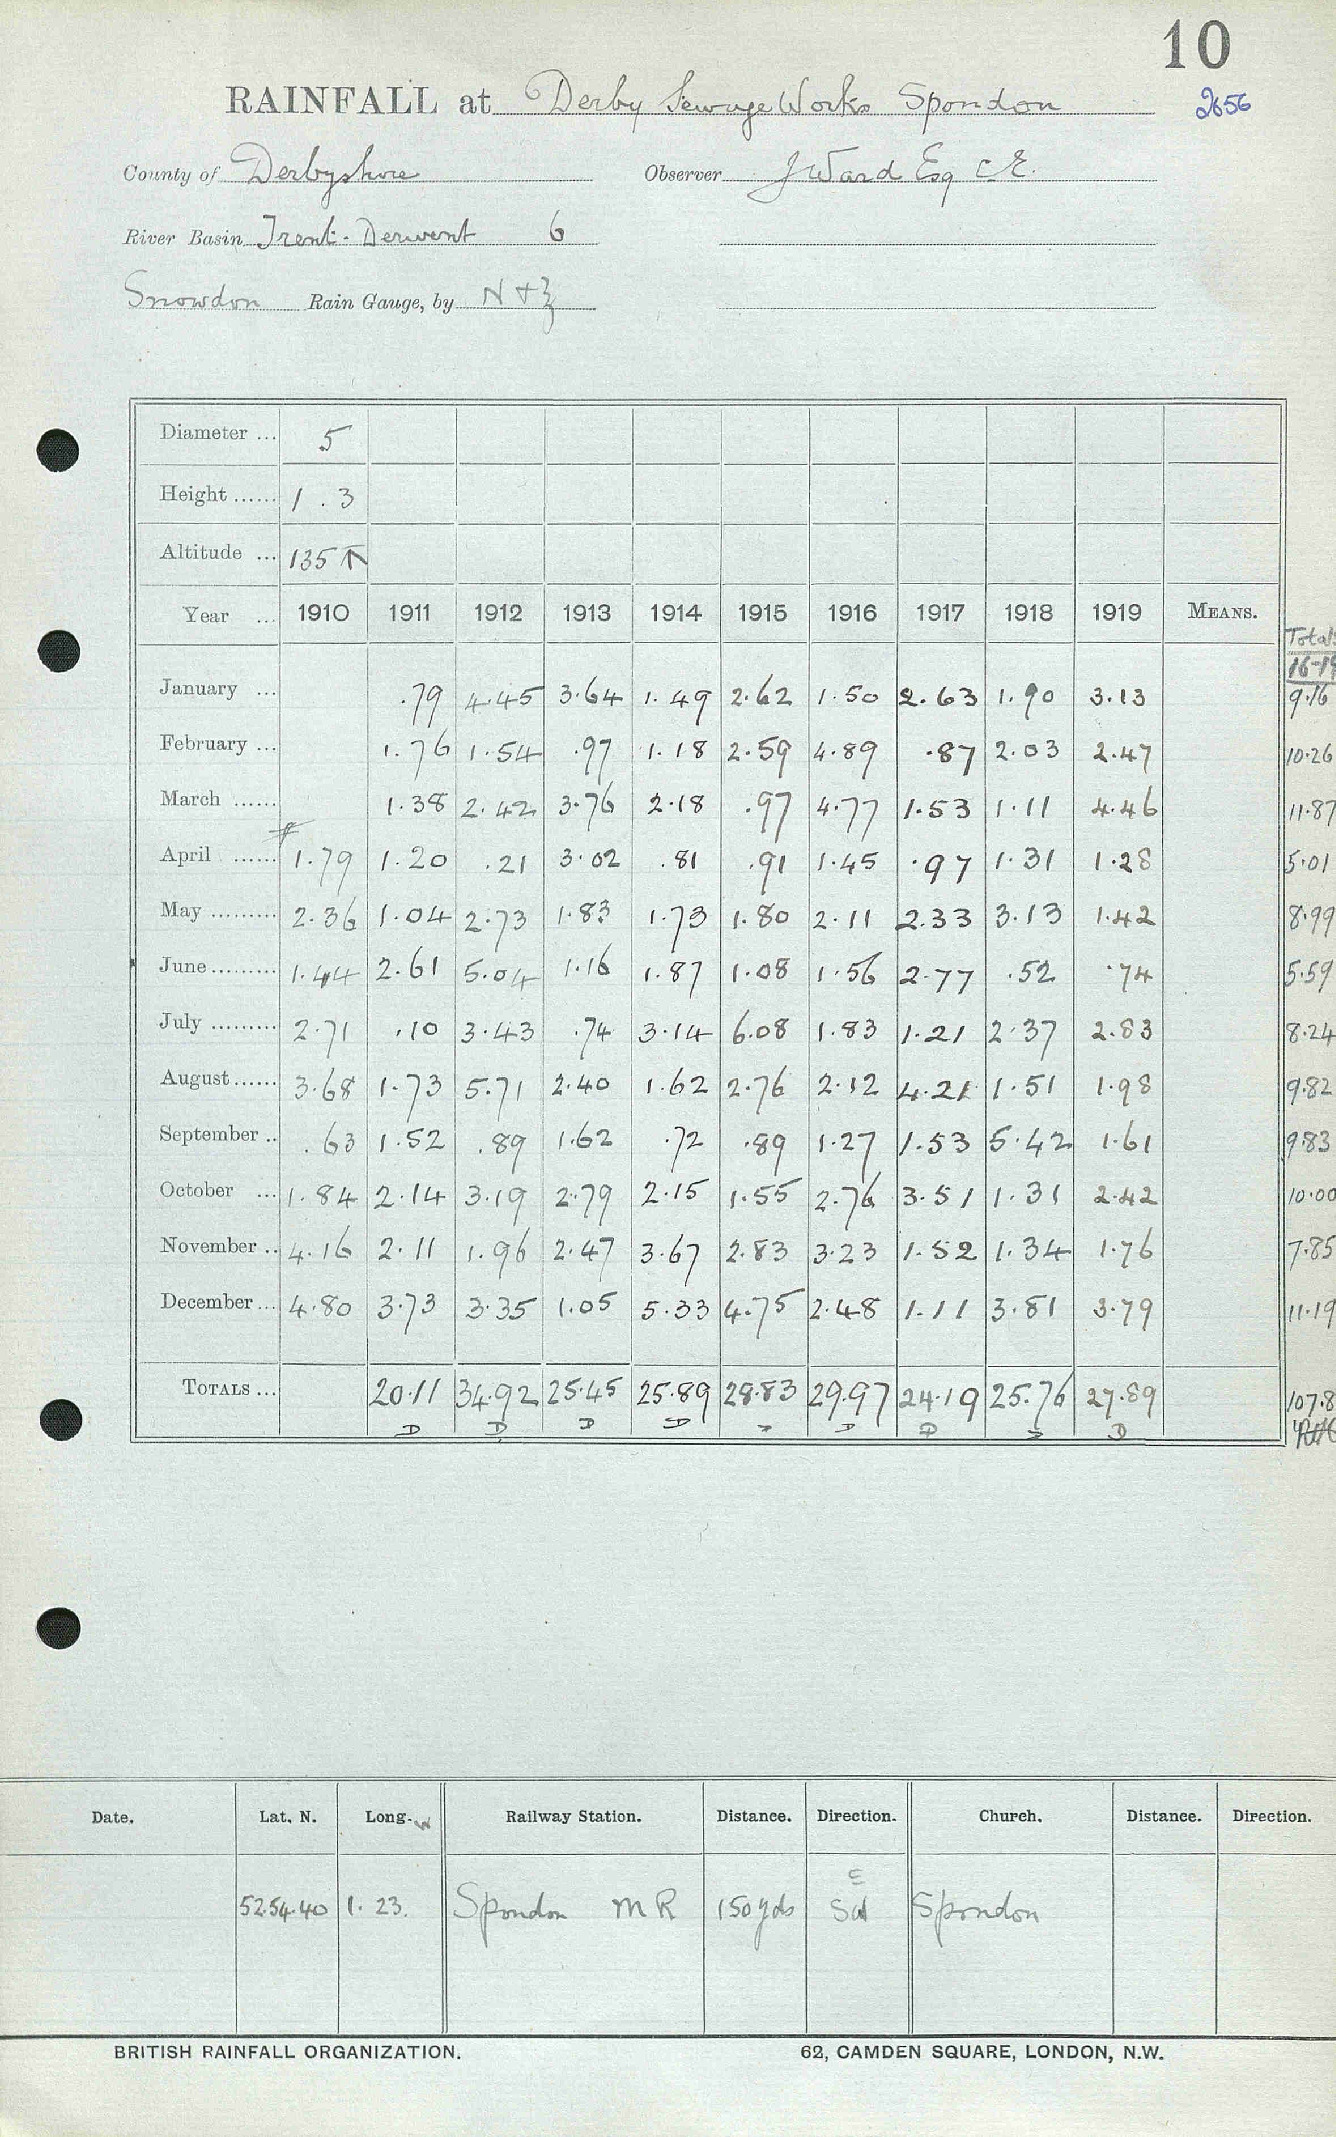 10
RAINFALL at Derby Sewage Works Spondon 2656
County of Derbyshire Observer J Ward Esq C.E.
River Basin Trent - Derwent 6
Snowdon Rain Gauge, by N + Z
Diameter ... 5
Height ...... 1 . 3
Altitude ... 135 ↑
Year ... 1910 1911 1912 1913 1914 1915 1916 1917 1918 1919 MEANS. Totals
16-19
January ... .79 4.45 3.64 1.49 2.62 1.50 2.63 1.90 3.13 9.16
February ... 1.76 1.54 .97 1.18 2.59 4.89 .87 2.03 2.47 10.26
March ...... 1.38 2.42 3.76 2.18 .97 4.77 1.53 1.11 4.46 11.87
April ...... 1.79 1.20 .21 3.02 .81 .91 1.45 .97 1.31 1.28 5.01
May ......... 2.36 1.04 2.73 1.83 1.73 1.80 2.11 2.33 3.13 1.42 8.99
June ......... 1.44 2.61 5.04 1.16 1.87 1.08 1.56 2.77 .52 .74 5.59
July ......... 2.71 .10 3.43 .74 3.14 6.08 1.83 1.21 2.37 2.83 8.24
August ...... 3.68 1.73 5.71 2.40 1.62 2.76 2.12 4.21 1.51 1.98 9.82
September .. .63 1.52 .89 1.62 .72 .89 1.27 1.53 5.42 1.61 9.83
October ... 1.84 2.14 3.19 2.79 2.15 1.55 2.76 3.51 1.31 2.42 10.00
November .. 4.16 2.11 1.96 2.47 3.67 2.83 3.23 1.52 1.34 1.76 7.85
December ... 4.80 3.73 3.35 1.05 5.33 4.75 2.48 1.11 3.81 3.79 11.19
TOTALS ... 20.11 34.92 25.45 25.89 28.83 29.97 24.19 25.76 27.89 107.8
D D D D D D D D D
Date. Lat. N. Long. W Railway Station. Distance. Direction. Church. Distance. Direction.
E
52.54.40 1. 23. Spondon M R 150 yds SW Spondon
BRITISH RAINFALL ORGANIZATION. 62, CAMDEN SQUARE, LONDON, N.W.